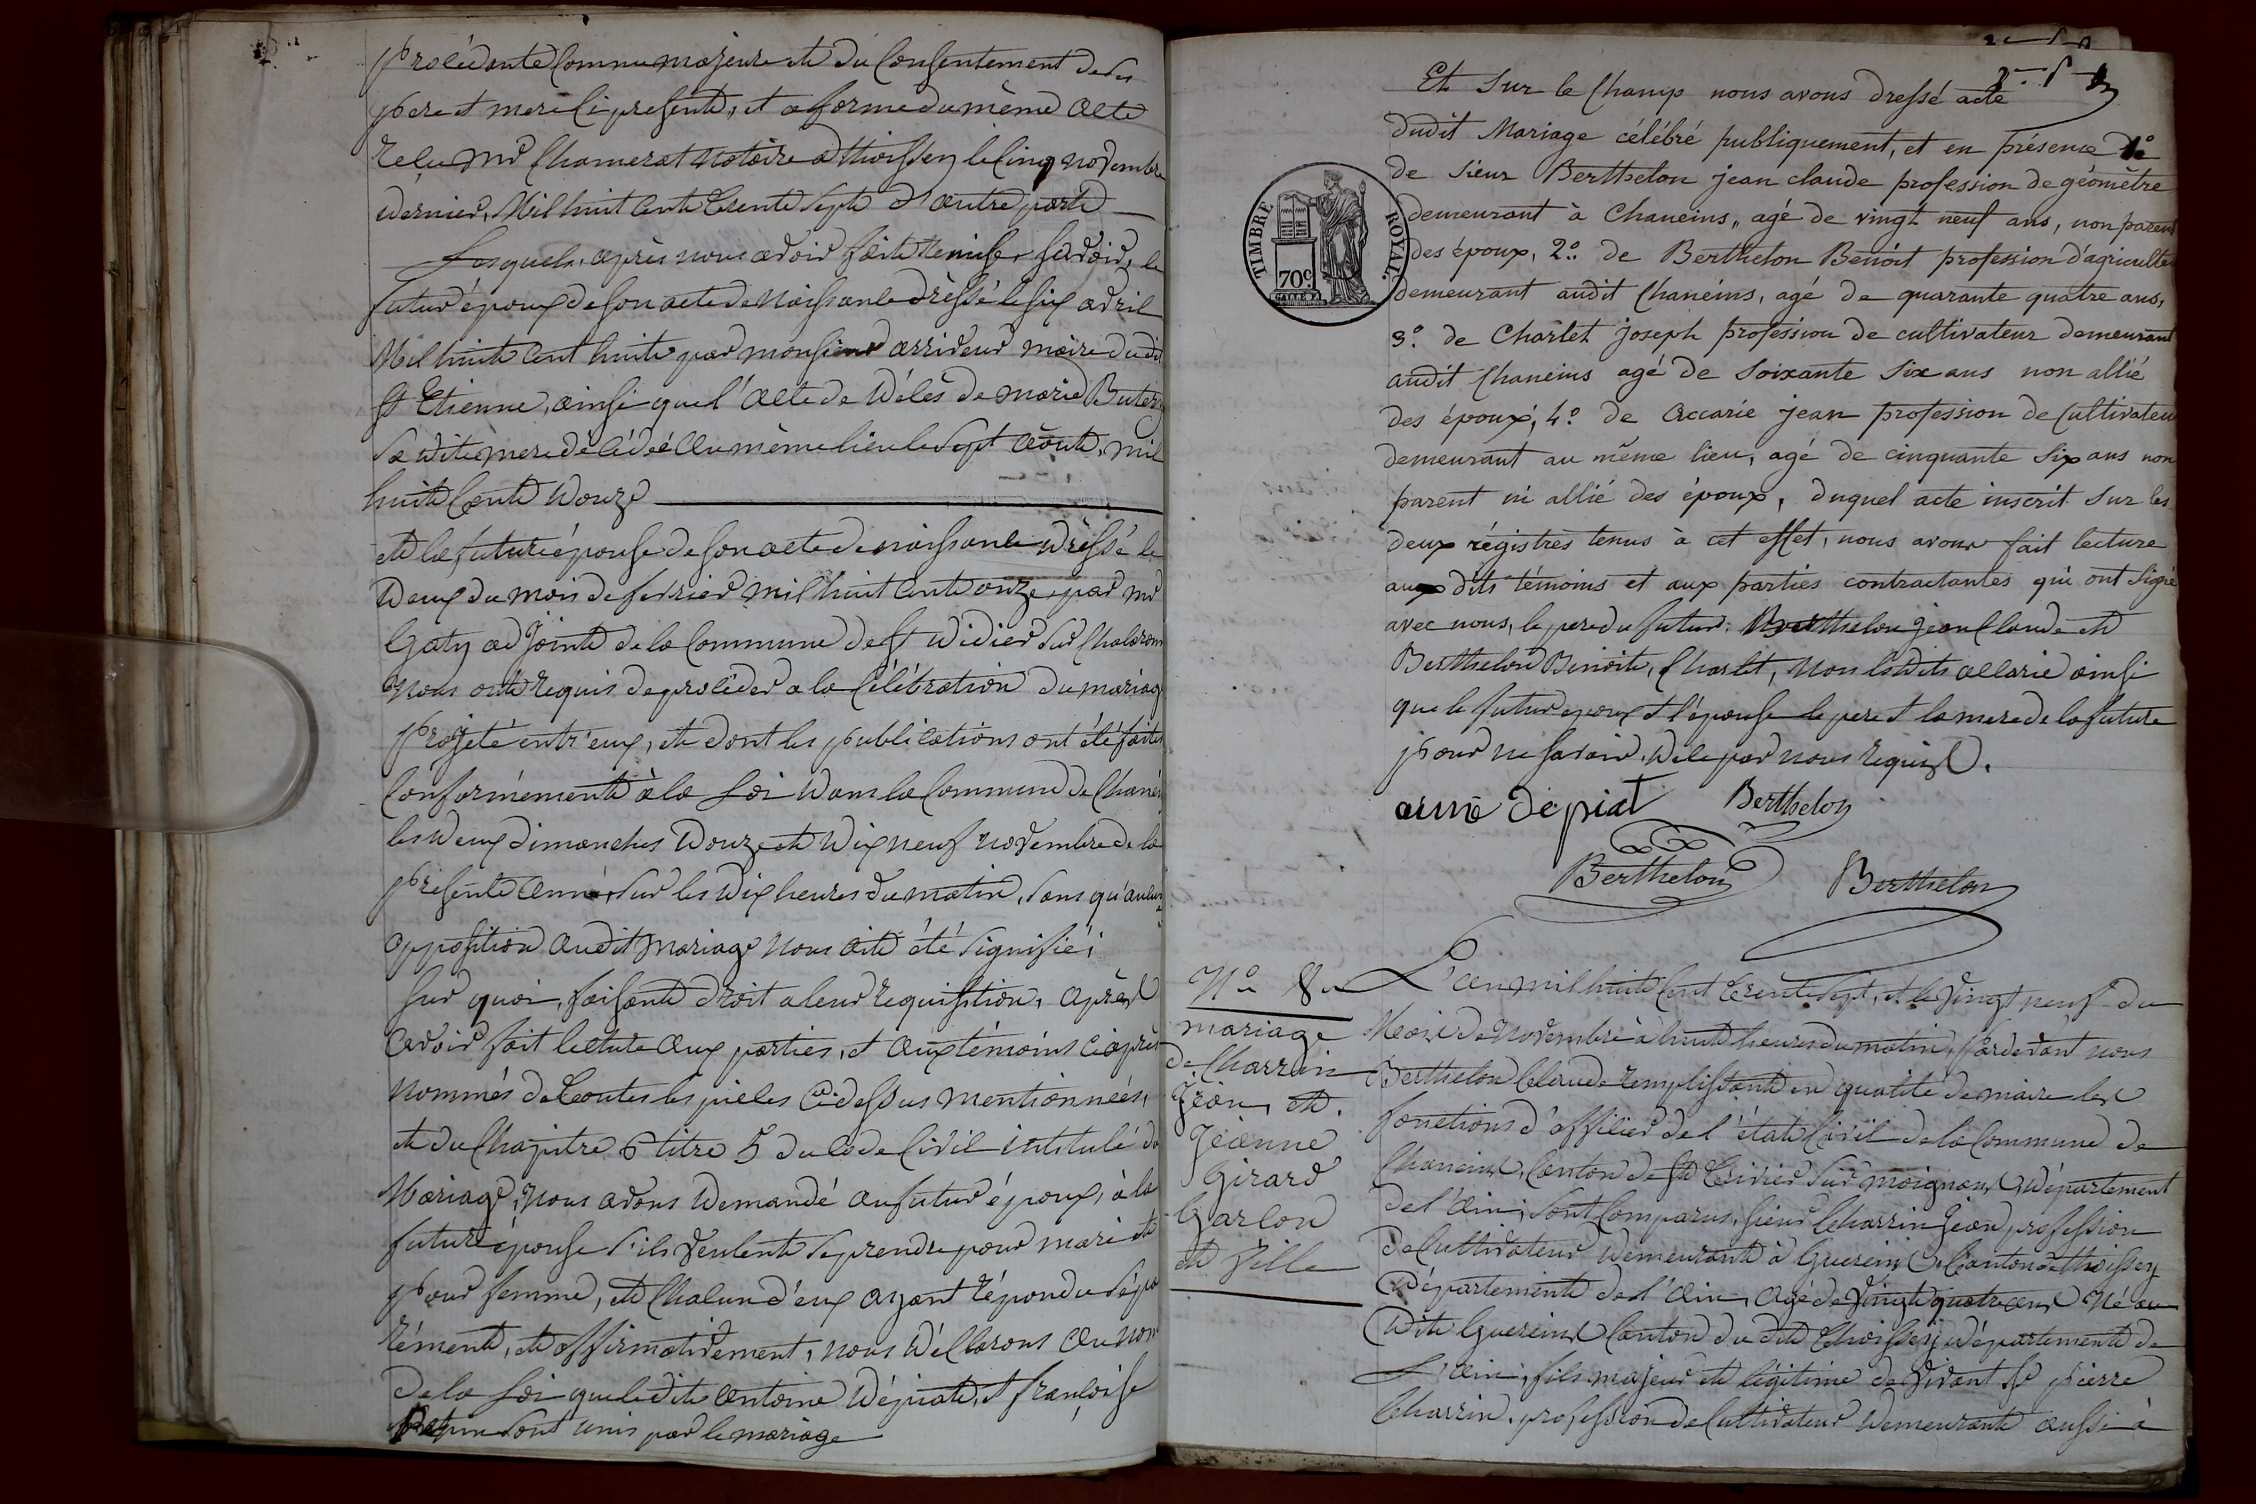 procédante comme majeure et du consentement de ses
pere et mere ci presents, et a forme du même acte
reçu Mr Chamerat notaire a Thoissey le cinq novembre
dernier, Mil huit cent trente sept d'autre part
Lesquels, après nous avoir fait remise, savoir, le
futur époux de son acte de naissance dressé le six avril
Mil huit cent huit par monsieur arriveur maire dudit
St Etienne, ainsi que l'acte de décès de marie
sa dite mere décédée au même lieu le sept août, mil
huit cent douze
et la future épouse de son acte de naissance dressé le
deux du mois de fevrier mil huit cent onze, par Mr
Gaty adjoint de la commune de St Didier sur Chalaronne
Nous ont requis de procéder a la célébration du mariage
projeté entr'eux, et dont les publications ont été faites
conformément à la loi dans la commune de Chaneins
les deux dimanches douze et dix neuf novembre de la
présente année, sur les dix heures du matin, sans qu'aucune
opposition audit mariage nous ait été signifiée;
sur quoi, faisant droit a leur requisition, après
avoir fait lecture aux parties, et aux témoins ci après
nommés de toutes les pièces ci-dessus mentionnées,
et du chapitre 6 titre 5 du code civil intitulé du
Mariage, nous avons demandé au futur époux, à la
future épouse s'ils veulent se prendre pour mari et
pour femme, et chacun d'eux ayant répondu sépa
rément, et affirmativement, nous déclarons au nom
de la loi que le dit antoine dépiat, et françoise
sont unis par le mariage
Et sur le champ nous avons dressé acte
dudit Mariage célébré publiquement, et en présence 1º
de sieur Berthelon jean claude profession de géomètre
demeurant à Chaneins, agé de vingt neuf ans, non parent
des époux, 2º de Berthelon Benoit profession d'agriculteur
demeurant audit Chaneins, agé de quarante quatre ans,
3º de Charlet joseph profession de cultivateur demeurant
audit Chaneins agé de soixante six ans non allié
des époux, 4º de accarie jean profession de cultivateur
demeurant au même lieu, agé de cinquante six ans non
parent ni allié des époux, duquel acte inscrit sur les
deux régistres tenus à cet effet, nous avons fait lecture
aux dits témoins et aux parties contractantes qui ont signé
avec nous, le pere du futur, Berthelon jean Claude et
Berthelon Benoit, Charlet, Non ledit accarie ainsi
que le futur epoux et l'épouse le pere et la mere de la future
pour ne savoir, de ce par nous requis.
TIMBRE ROYAL.
70c
dépiat Berthelon
Berthelon Berthelon
Nº 8
mariage
de Charrin
Jean, et
Jeanne
Girard
Garcon
et fille
L'an mil huit cent trente sept, et le vingt neuf du
Mois de Novembre à huit heures du matin, pardevant nous
Berthelon Claude remplissant en qualité de maire les
fonctions d'officier de l'état civil de la commune de
Chaneins, canton de St Trivier sur moignans, département
de l'ain, sont comparus, sieur Charrin Jean profession
de cultivateur demeurant à Guereins, canton de Thoissey
Département de l'ain, agé de vingt quatre ans Né au
dit Guereins canton du dit Thoissey département de
L'ain, fils majeur et légitime de vivant Sr pierre
Charrin, profession de cultivateur demeurant aussi à